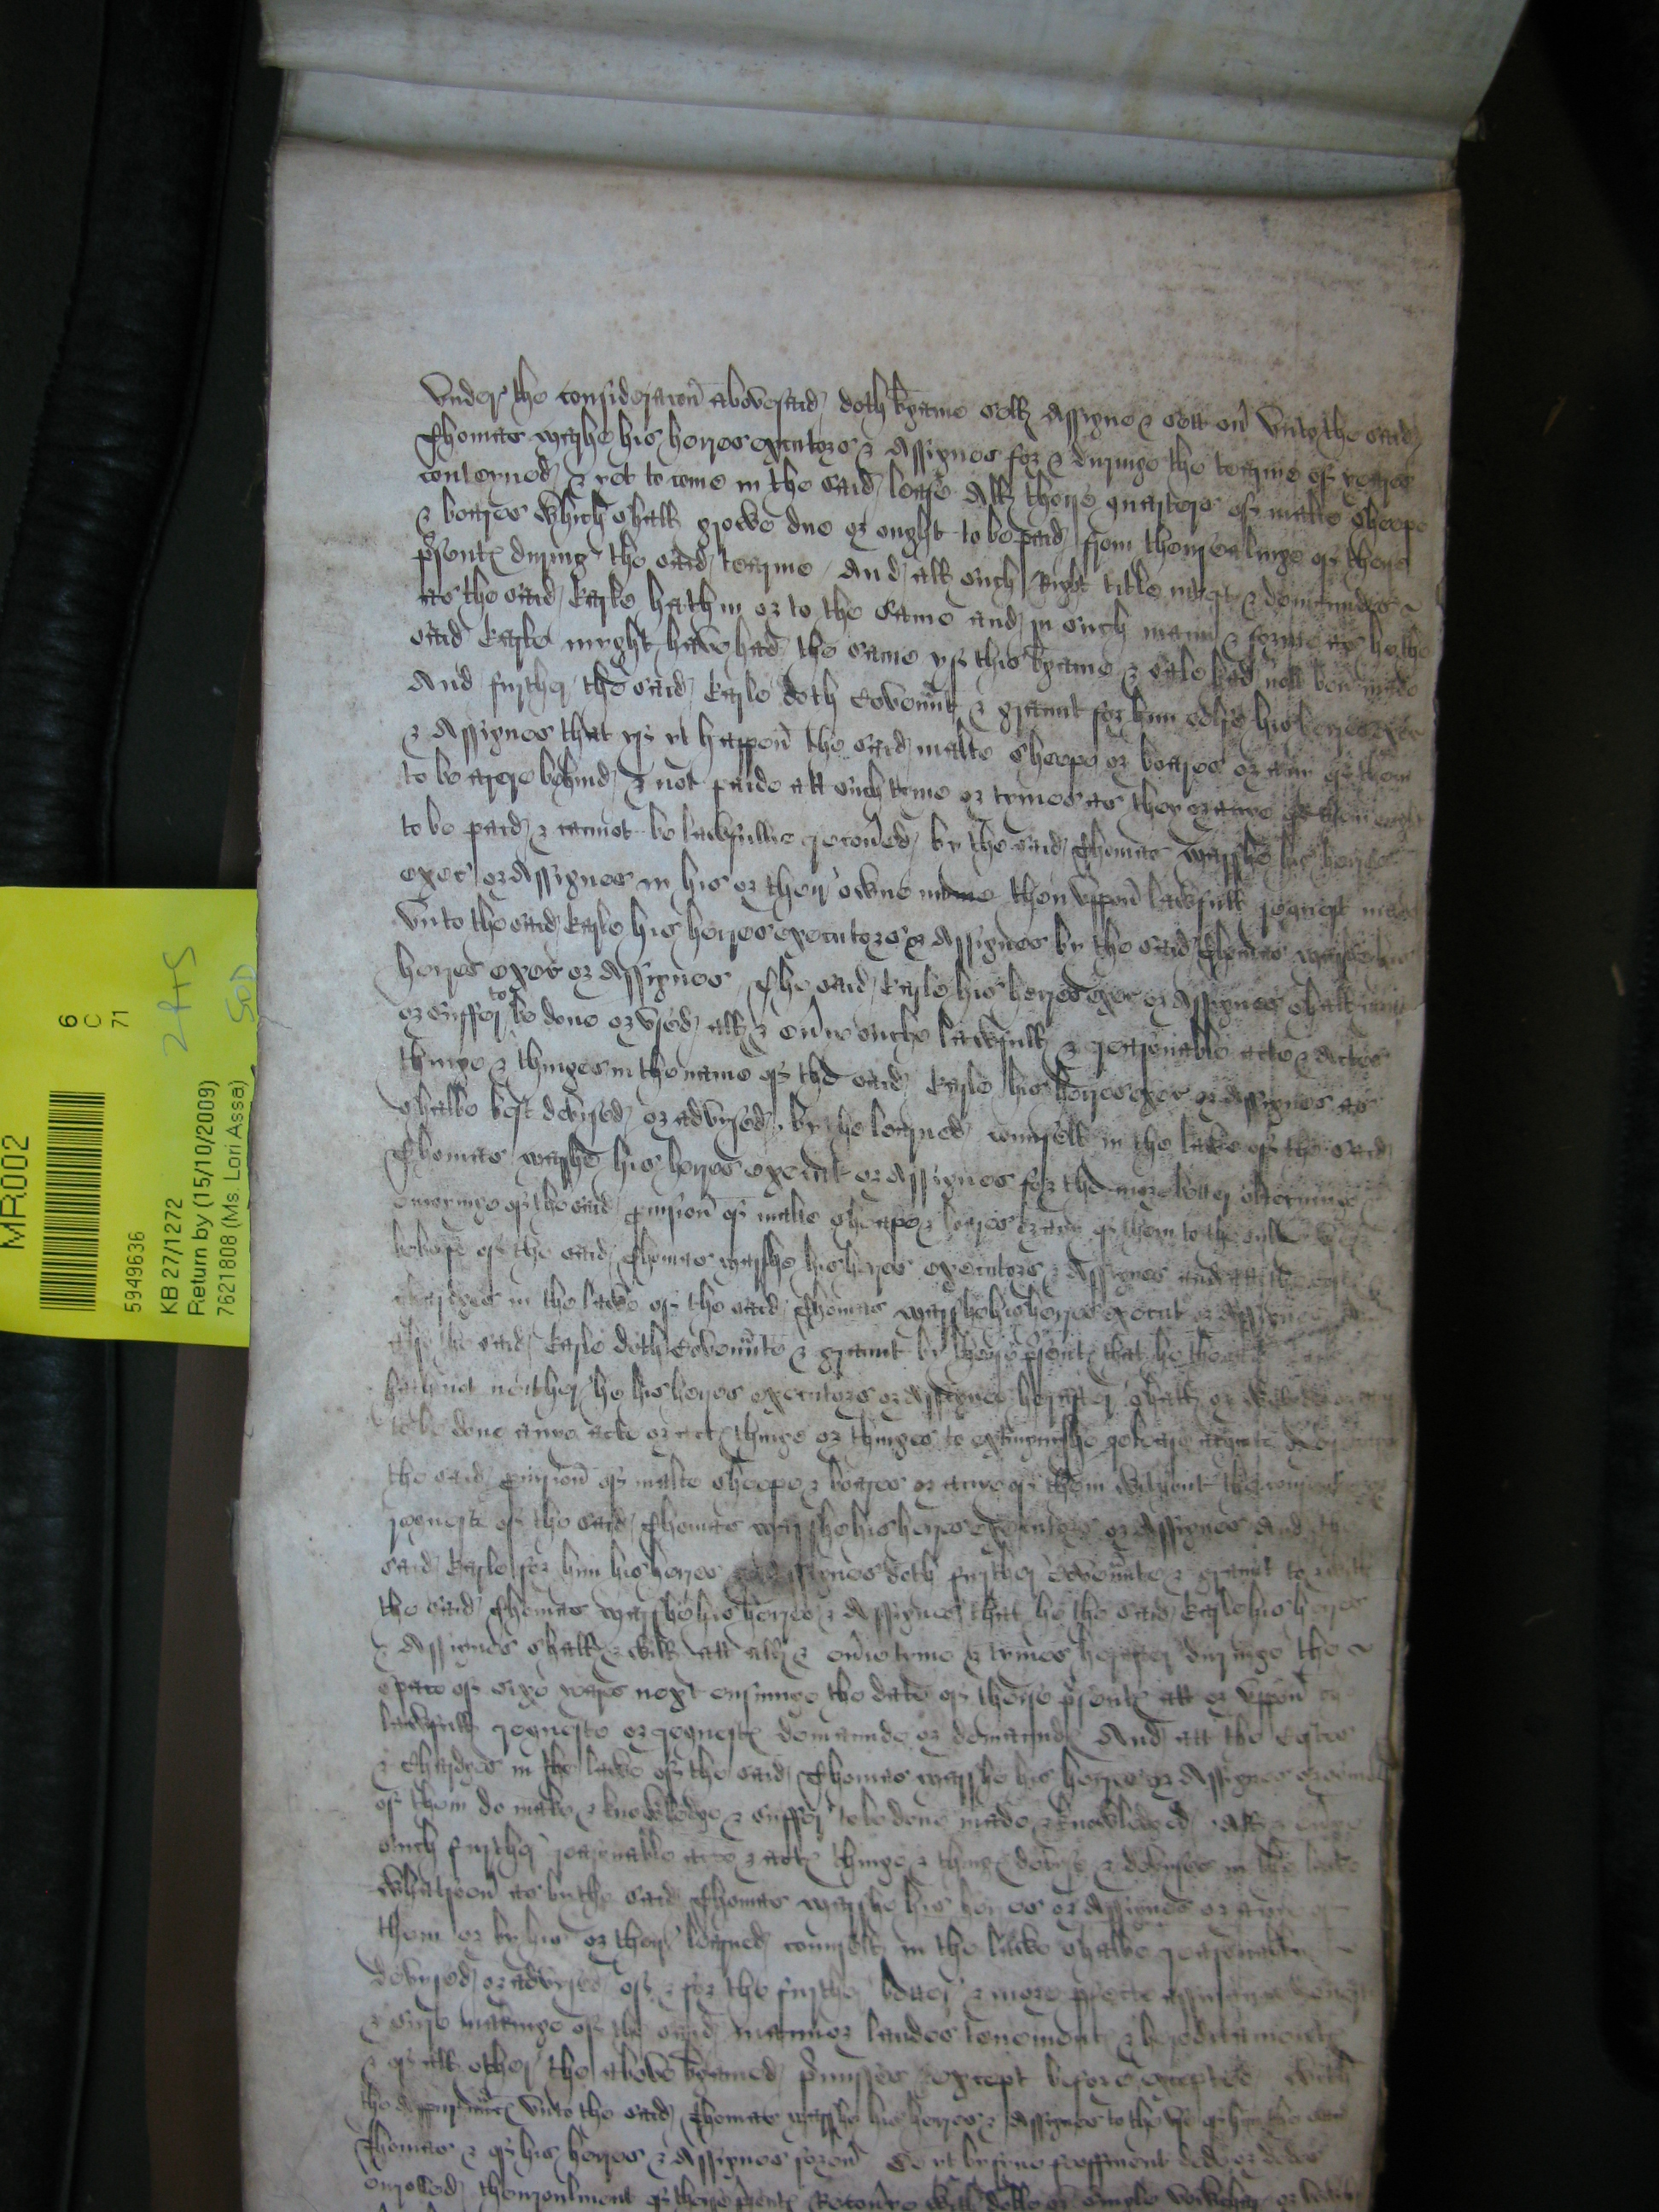 Under the consideracon abovesaid doth bargaine sell Assigne & sett ov unto the said
Thomas Marshe his heyres executors & Assignes for & duringe the tearme of yeares
conteyned & yet to come in the said lease All those quarters of malte sheepe
& boares which shall growe due or ought to be paid from thensealinge of these
psents during the said tearme And all such Right title intrest & demaundes
as the said Earle hath in or to the same and in such mann & forme as he the
said Earle myght have had the same yf this bargaine & sale had nott ben made
And further the said Earle doth Covennt & graunt for him selfe his heyres
& Assignes that yf yt happen the said malte sheepe or boares or anie of them
to be arere behind & not paide att such tyme or tymes as they or anye of them ought
to be paid & cannot be lawfullie recoved by the said Thomas Marshe his heyres
exec or Assignes in his or their owne name then uppon lawfull request made
unto the said Earle his heyres executors & Assignes by the said Thomas Marshe his
heyres exec or Assignes The said Earle his heyres exec or Assignes shall
or suffer to be done or used all & evie suche lawfull & reasonable acte & Actes
thinge & thinges in the name of the said Earle his heyres exec or Assignes as
shalbe best devysed or advysed by the learned counsell in the lawe of the said
Thomas Marshe his heyres execut or Assignes for the more better obteyninge
of the said pvision of malte sheepe & boares or anie of them to the
behofe of the said Thomas Marshe his heyres executors & Assignes and att the costes &
chardges in the lawe of the said Thomas Marshe his heyres execut or Assignes
the said Earle doth Covennte & graunt by these psents that he the said
hath not neither he his heyres executors or Assignes hereafter shall or
to be done anye acte or acts thinge or thinges to extinguishe release
the said pvision of malte sheepe & boares or anye of them without the consent or
requeste of the said Thomas Marshe his heyres executors or Assignes And the
said Earle for him his heyres Assignes doth further covennte & graunt to & with
the said Thomas Marshe his heyres & Assignes that he the said Earle his heyres
& Assignes shall & will att all & evie tyme & tymes hereafter duringe the
space of sixe yeares next ensuinge the date of these psents att or uppon
lawfull requeste or requests demaunde or demaunds And att the Costes
& chardges in the lawe of the said Thomas Marshe his heyres or Assignes or
of them do make & knowledge & suffer to be done made & knowledged All &
such further reasonable acte & acts thinge & things devise & devises in the lawe
whatsoev as by the said Thomas Marshe his heyres or Assignes or anye of
them or by his or their learned counsell in the lawe shalbe reasonablie
devysed or advysed of & for the further better & more pfecte assuraunce
& sure makinge of the said mannor landes tenements & hereditaments
& of all other the above bargained pmisses except before excepted with
the appurtnncs unto the said Thomas Marshe his heyres & Assignes to the use of him the said
Thomas & of his heyres & Assignes forev be yt by fine feoffment dede or dedes
enrolled thenrolment of these psents Recovie with doble or single voucher or

MR002
6
C
71
2 ft 5
5949636
KB 27/1272
Return by (15/10/2009)
7621808 (Ms. Lori Assa)